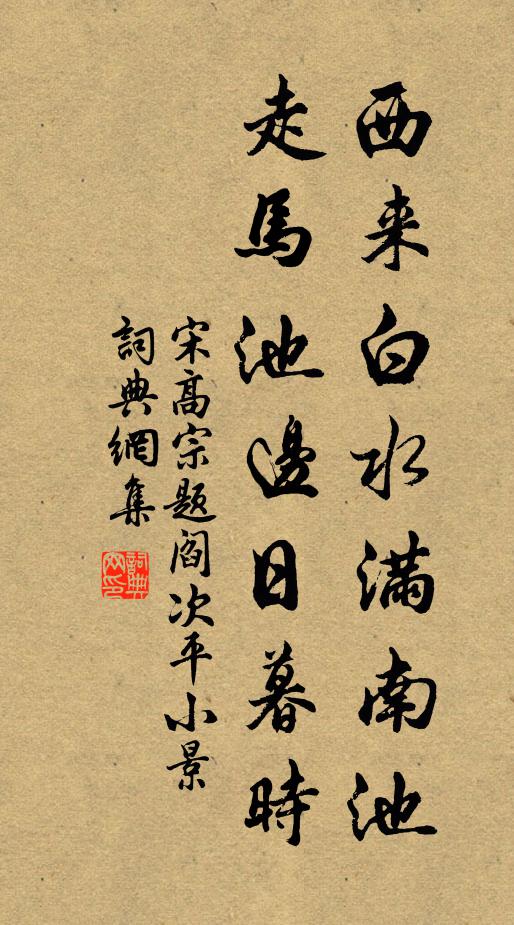 西来白水满南池
走馬池邊日暮時
宋高宗题阎次平小景
詞典網集
詞典網印